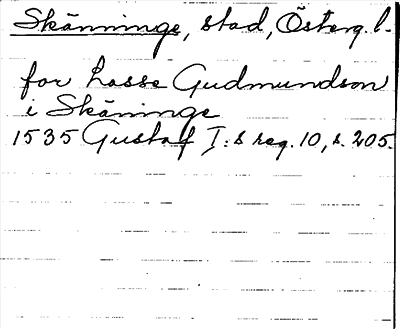 Skänninge, stad, Österg. l.
for Lasse Gudmundson
i Skäninge
1535 Gustaf I:s reg. 10, s. 205.